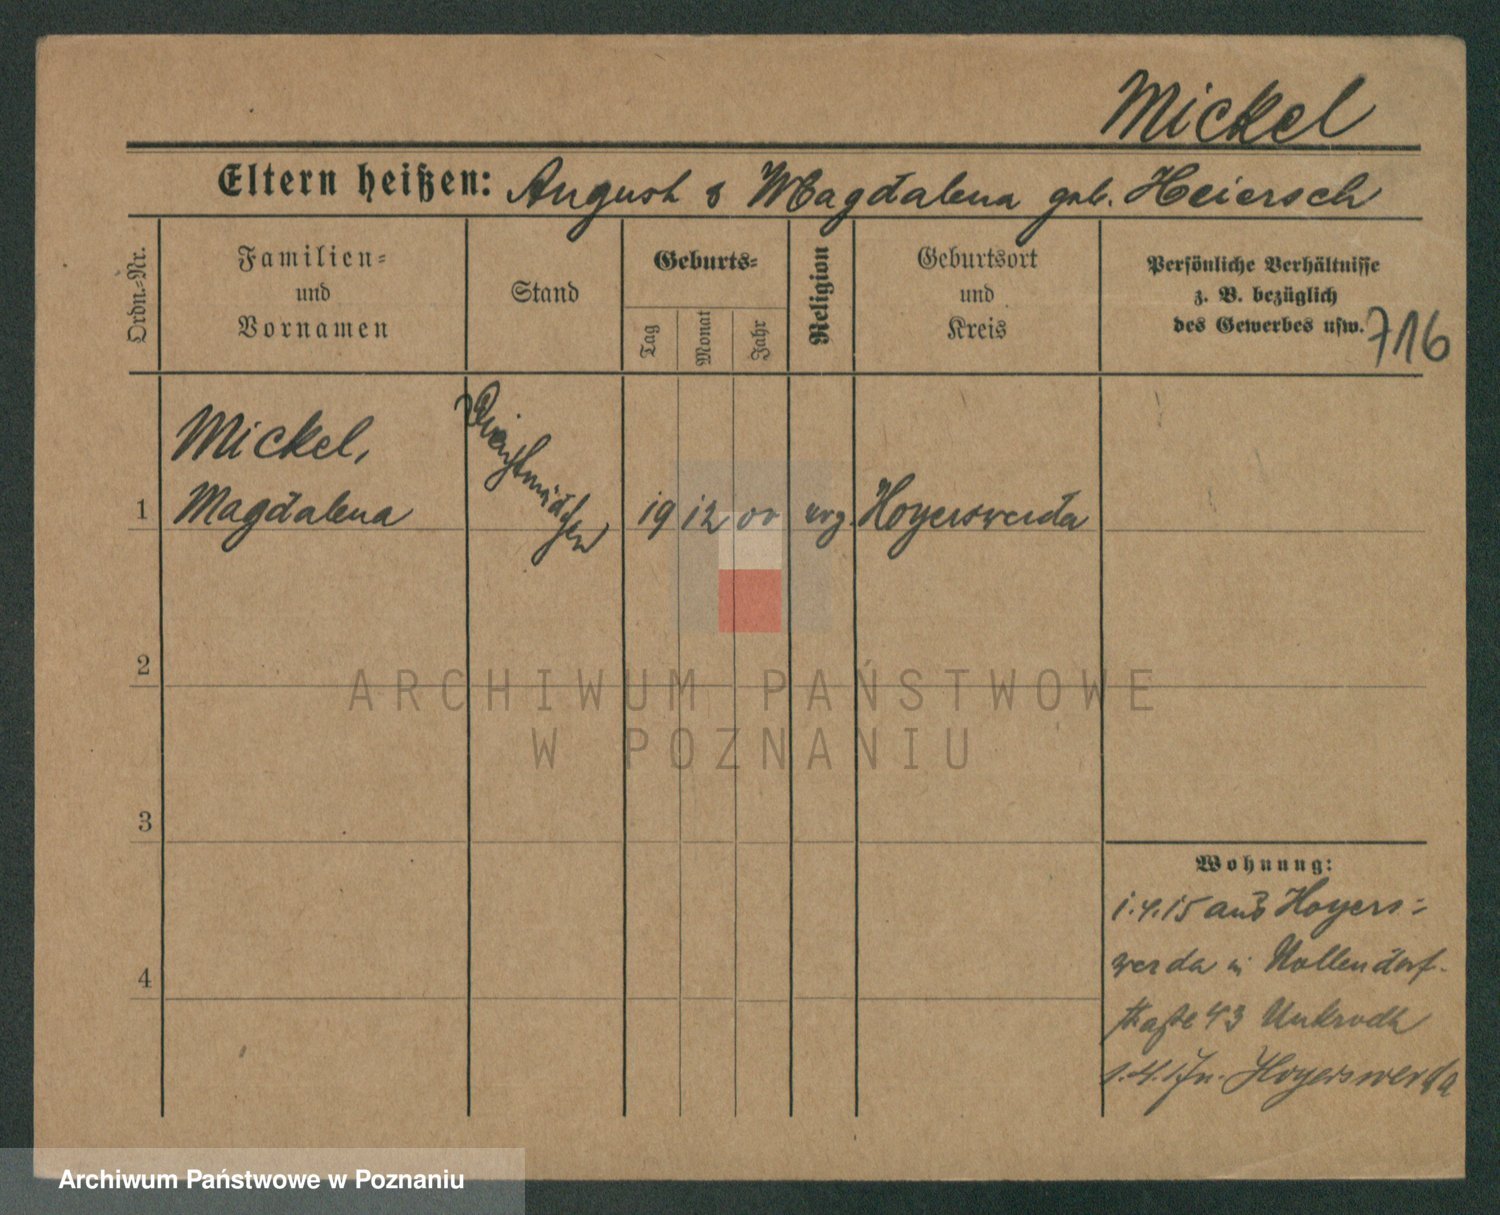 Mickel
Eltern heißen: August & Magdalena geb. Heiersch
Ordn.-Nr.
Familien-
und
Vornamen
Stand
Geburts-
Tag
Monat
Jahr
Religion
Geburtsort
und
Kreis
Persönliche Verhältnisse
z. B. bezüglich
des Gewerbes usw.
716
Mickel,
1 Magdalena Dienstmädchen 19 12 00 evg. Hoyerswerda
2
ARCHIWUM PAŃSTWOWE
W POZNANIU
3
Wohnung:
1.4.15 aus Hoyers-
werda in Nollendorf-
4
straße 43
1.4.17 n. Hoyerswerda
Archiwum Państwowe w Poznaniu